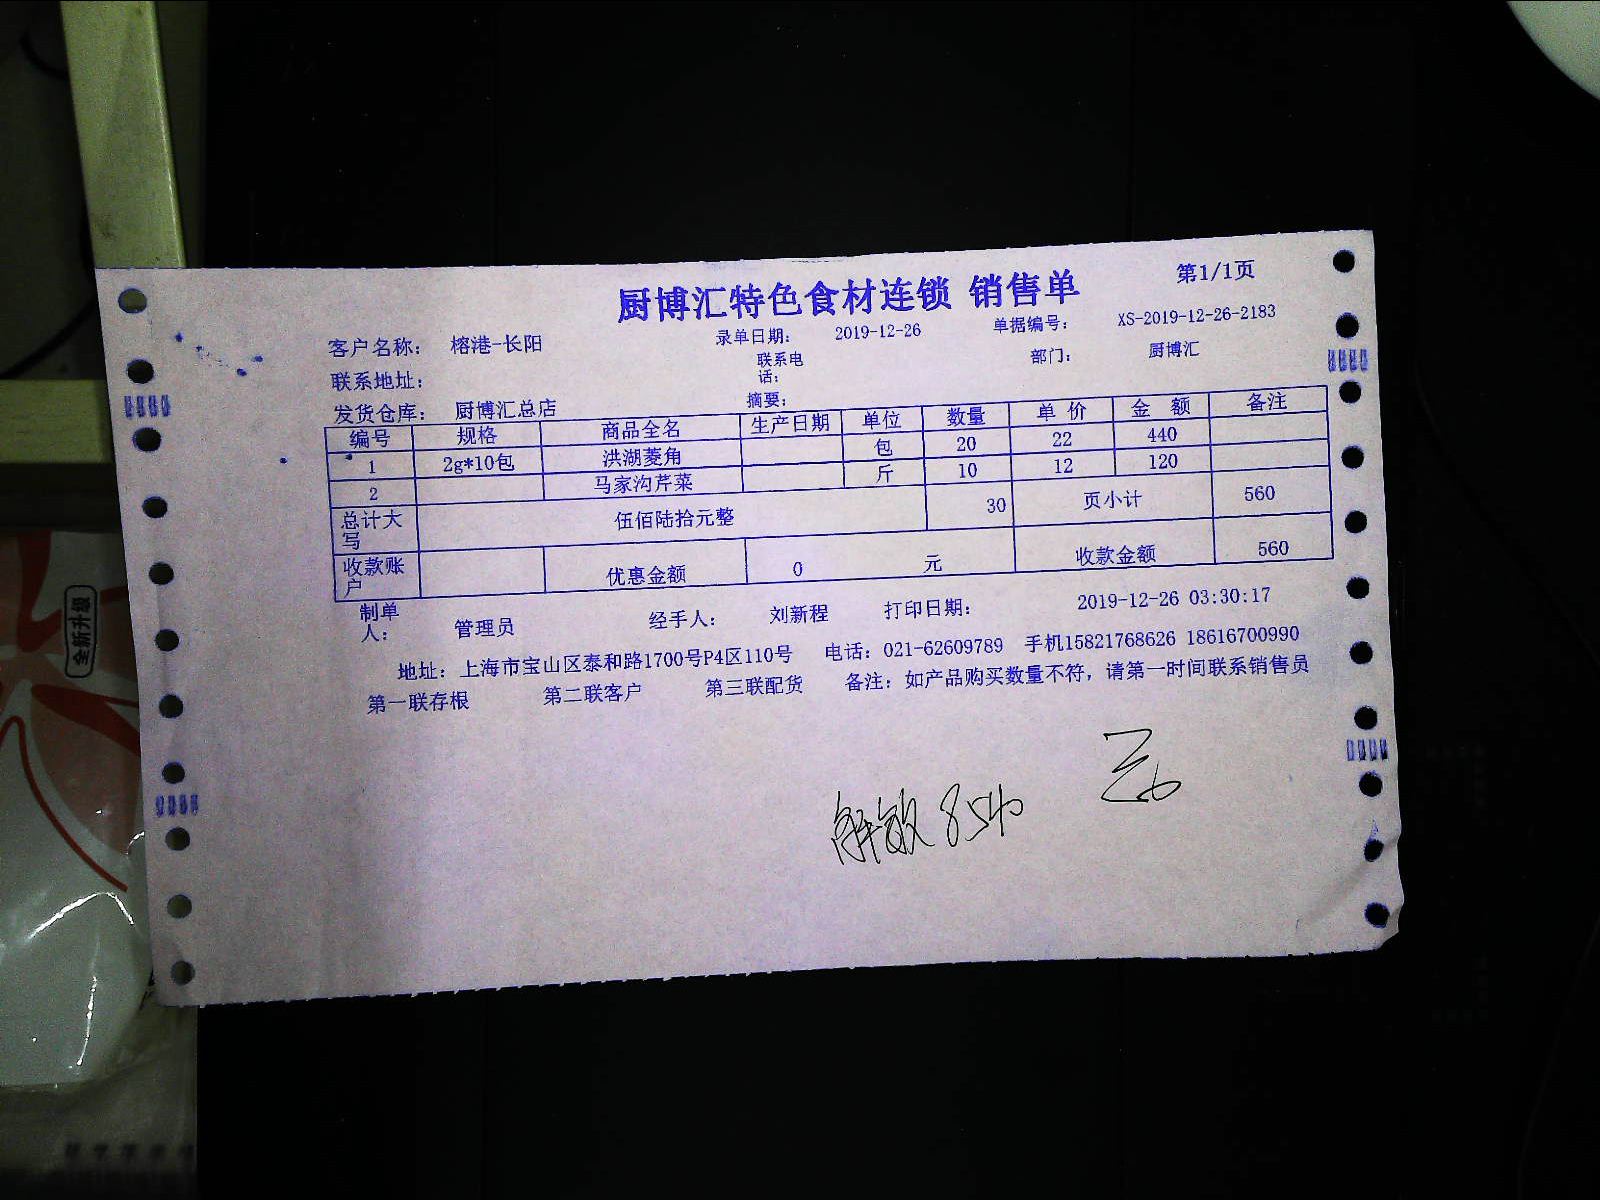 厨博汇特色食材连锁 销售单 第1/1页
客户名称： 榕港-长阳 录单日期： 2019-12-26 单据编号： XS-2019-12-26-2183
联系地址： 联系电话： 部门： 厨博汇
发货仓库： 厨博汇总店 摘要：
编号 规格 商品全名 生产日期 单位 数量 单 价 金 额 备注
1 2g*10包 洪湖菱角 包 20 22 440
2 马家沟芹菜 斤 10 12 120
总计大写 伍佰陆拾元整 30 页小计 560
收款账户 优惠金额 0 元 收款金额 560
制单人： 管理员 经手人： 刘新程 打印日期： 2019-12-26 03:30:17
地址：上海市宝山区泰和路1700号P4区110号 电话：021-62609789 手机15821768626 18616700990
第一联存根 第二联客户 第三联配货 备注：如产品购买数量不符，请第一时间联系销售员
全新升级